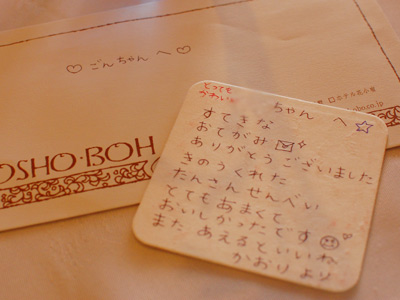 ♡ ごんちゃん へ ♡
OSHO·BOH
とっても
かわいい
ちゃん へ☆
すてきな
おてがみ
ありがとうございました
きのうくれた
たんさんせんべい
とてもあまくて
おいしかったです
また あえるといいね
かおり より